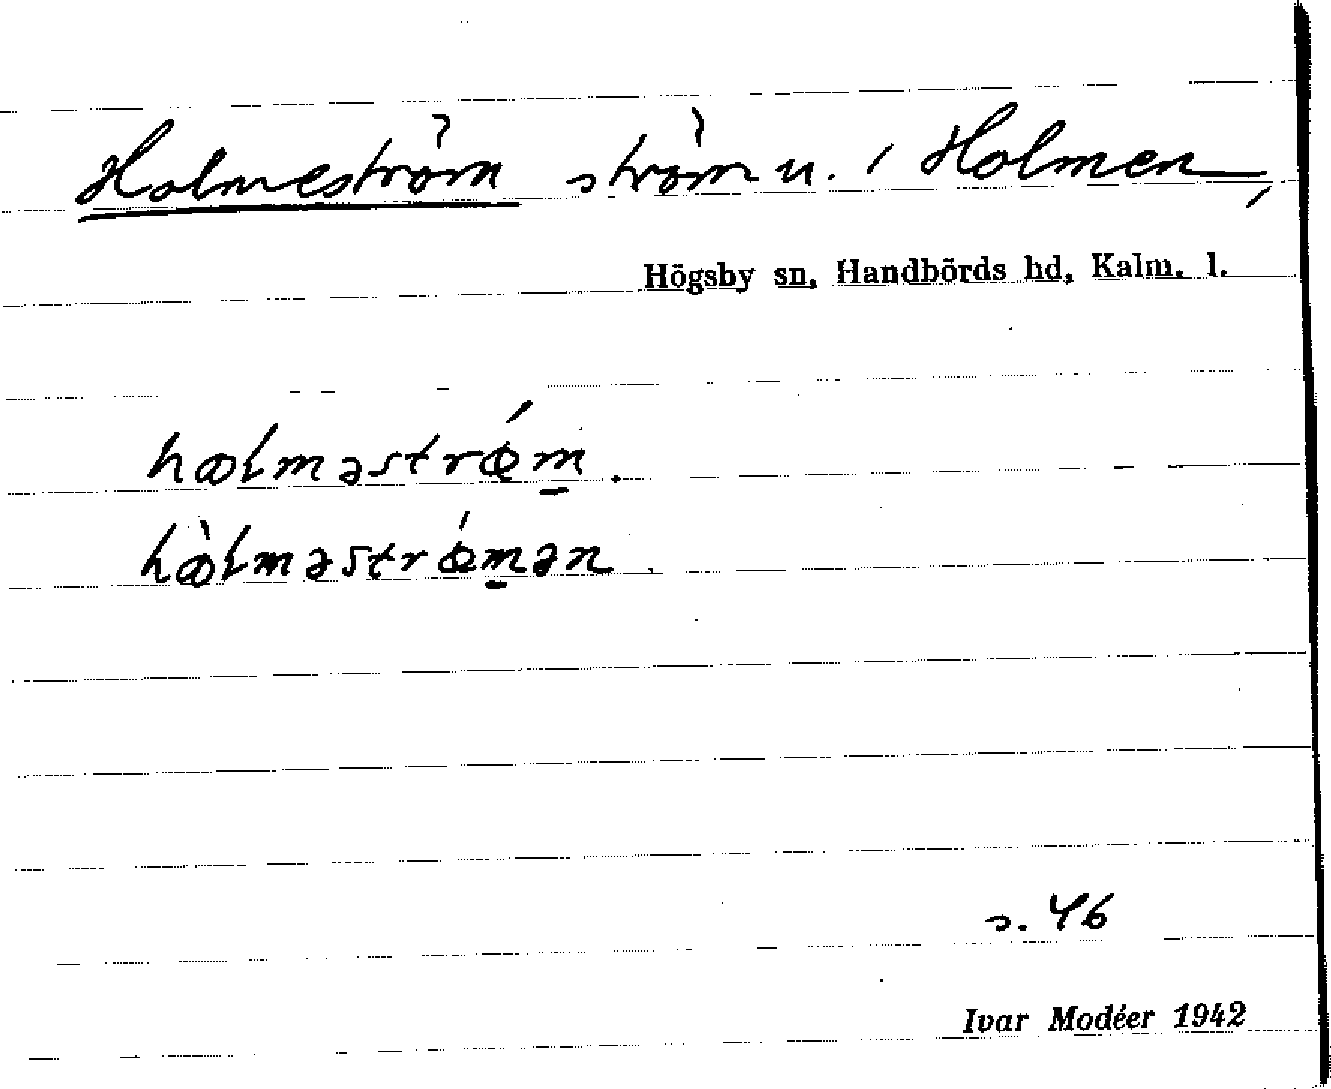 Holmeström ström u. i Holmen,
Högsby sn, Handbörds hd, Kalm. l.
hœlməstrǿm.
hœ̀lməstrǿmən
s. 46
Ivar Modéer 1942